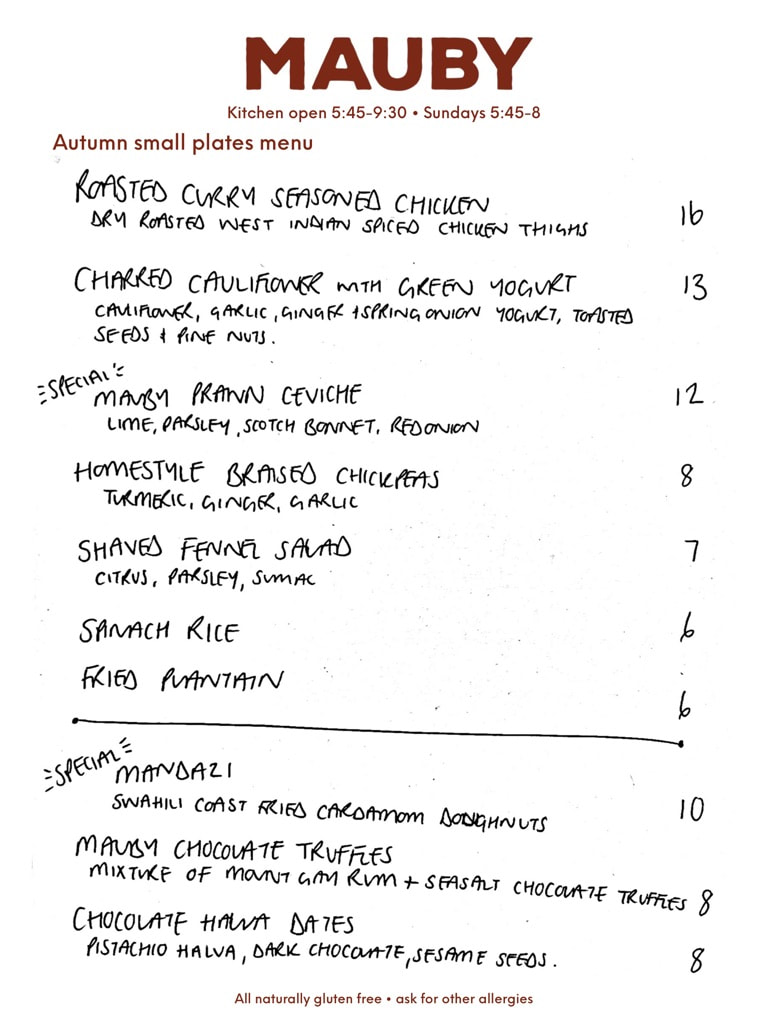 MAUBY
Kitchen open 5:45-9:30 • Sundays 5:45-8
Autumn small plates menu
ROASTED CURRY SEASONED CHICKEN 16
DRY ROASTED WEST INDIAN SPICED CHICKEN THIGHS
CHARRED CAULIFLOWER WITH GREEN YOGURT 13
CAULIFLOWER, GARLIC, GINGER + SPRING ONION YOGURT, TOASTED
SEEDS + PINE NUTS.
SPECIAL
MAUBY PRAWN CEVICHE 12
LIME, PARSLEY, SCOTCH BONNET, RED ONION
HOMESTYLE BRAISED CHICKPEAS 8
TURMERIC, GINGER, GARLIC
SHAVED FENNEL SALAD 7
CITRUS, PARSLEY, SUMAC
SPINACH RICE 6
FRIED PLANTAIN 6
SPECIAL
MANDAZI
SWAHILI COAST FRIED CARDAMOM DOUGHNUTS 10
MAUBY CHOCOLATE TRUFFLES
MIXTURE OF MOUNT GAY RUM + SEASALT CHOCOLATE TRUFFLES 8
CHOCOLATE HALVA DATES
PISTACHIO HALVA, DARK CHOCOLATE, SESAME SEEDS. 8
All naturally gluten free • ask for other allergies